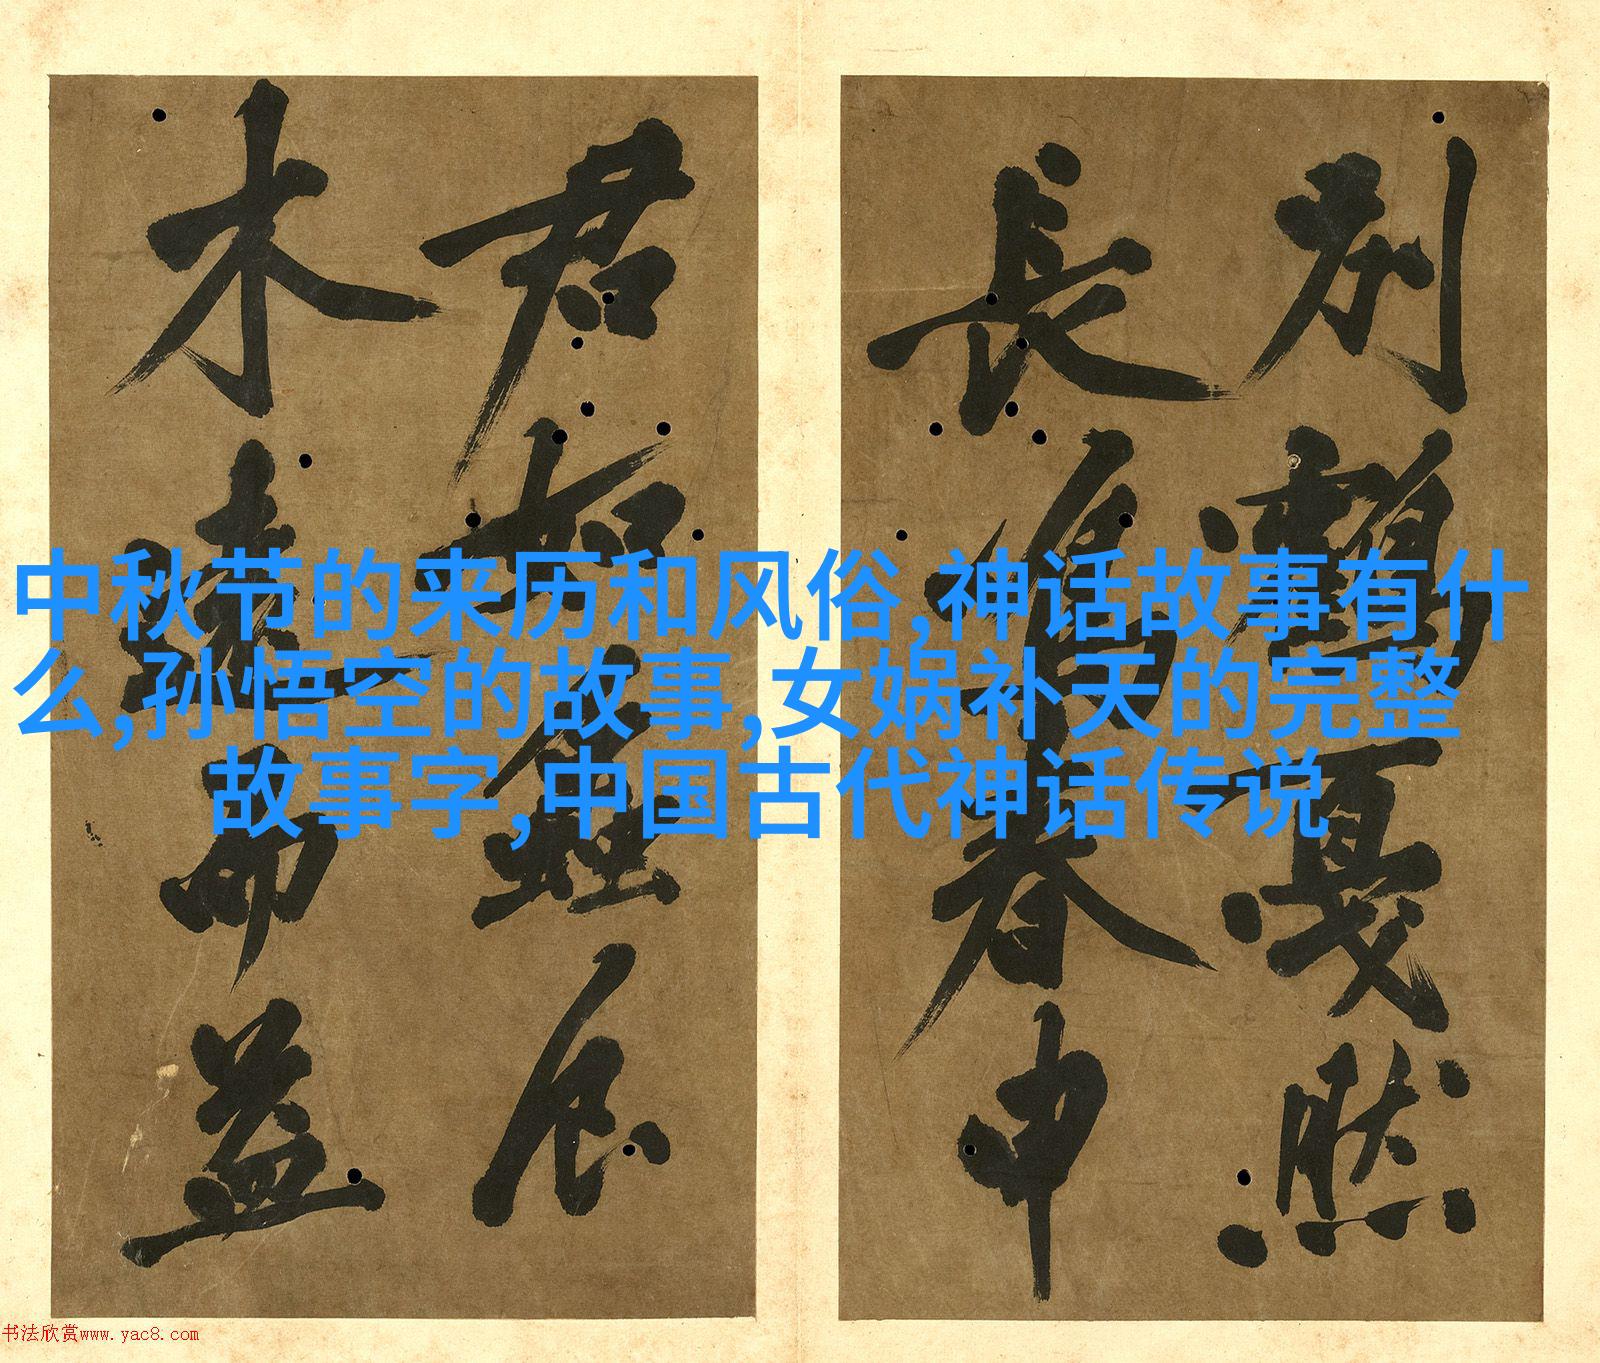 中秋节的来历和风俗,神话故事有什
么,孙悟空的故事,女娲补天的完整
故事字,中国古代神话传说
别鶴戛然
長春申
君如
木而益
书法欣赏www.yac8.com